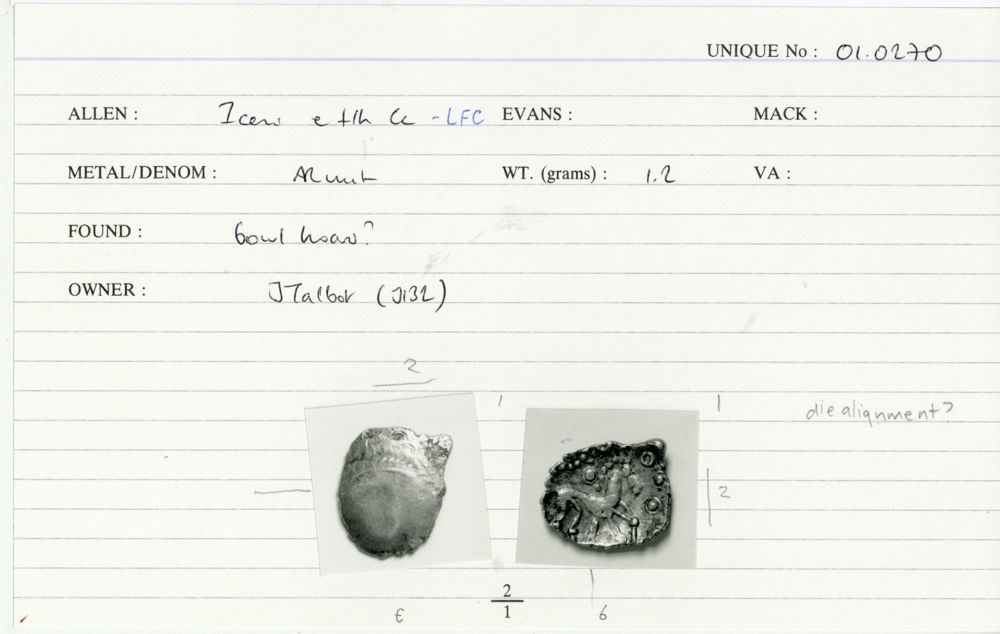 UNIQUE No : 01.0270
ALLEN : Iceni -LFC EVANS : MACK :
METAL/DENOM : AR unit WT. (grams) : 1.2 VA :
FOUND : bowl hoard?
OWNER : J Talbot (J132)
2
1 1 die alignment?
2
2
1
6 6